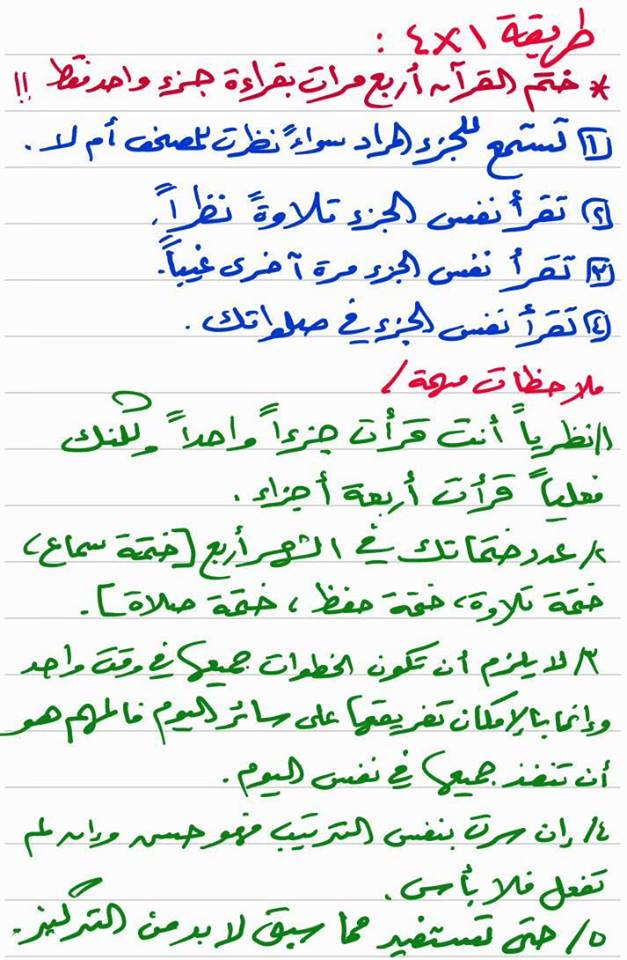 طريقة ١×٤ :
* ختم القرآن أربع مرات بقراءة جزء واحد فقط !!
١) تستمع للجزء المراد سواءً نظرت للمصحف أم لا .
٢) تقرأ نفس الجزء تلاوةً نظراً.
٣) تقرأ نفس الجزء مرة أخرى غيباً.
٤) تقرأ نفس الجزء في صلواتك .
ملاحظات مهمة /
١/ نظرياً أنت قرأت جزءاً واحداً ولكنك
فعلياً قرأت أربعة أجزاء .
٢/ عدد ختماتك في الشهر أربع [ختمة سماع،
ختمة تلاوة، ختمة حفظ ، ختمة صلاة].
٣/ لا يلزم أن تكون الخطوات جميعها في وقت واحد
وإنما بالإمكان تفريقها على سائر اليوم فالمهم هو
أن تنفذ جميعها في نفس اليوم .
٤/ إن سرت بنفس الترتيب فهو حسن وإن لم
تفعل فلا بأس .
٥/ حتى تستفيد مما سبق لا بد من التركيز .